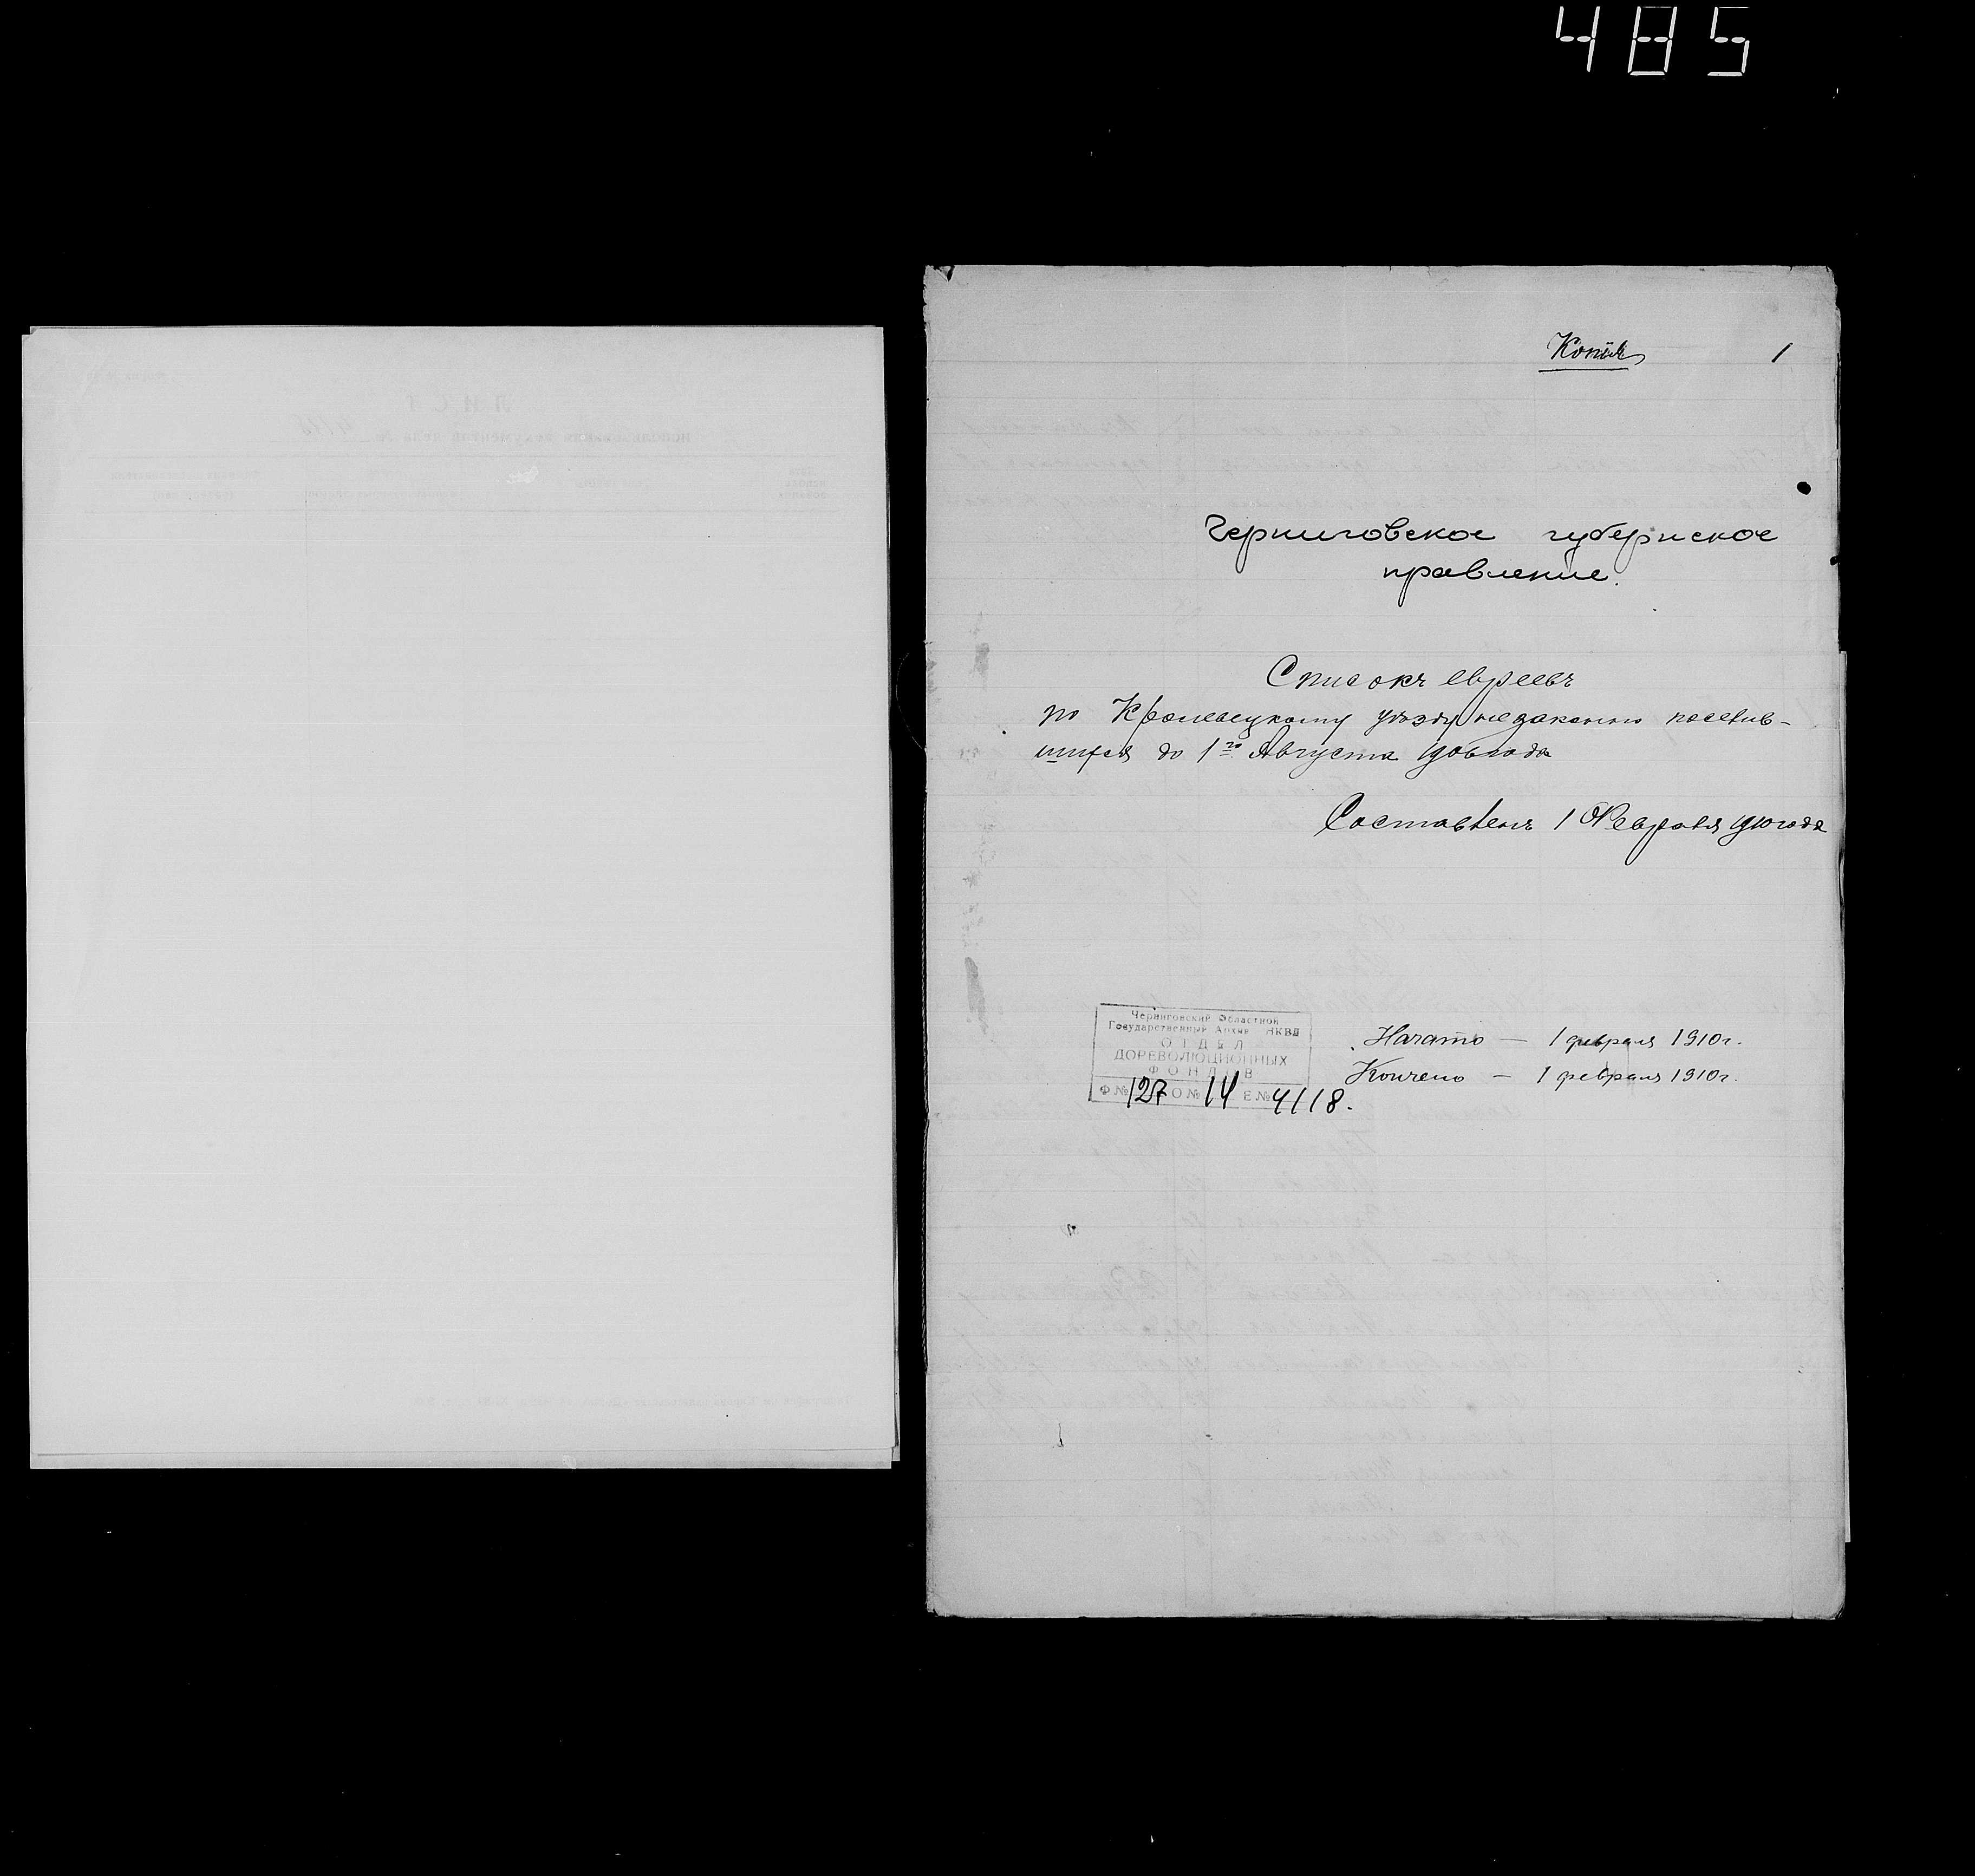 485
Копія
1
Черниговское губернское
правление.
Списокъ евреевъ
по Кролевецкому уѣзду незаконно поселив-
шихся до 1го Августа 1906 года
Составленъ 1 Февраля 1910 года
Черниговский Областной
Государственный Архив НКВД
ОТДЕЛ
ДОРЕВОЛЮЦИОННЫХ
ФОНДОВ
Ф № 127 О № 14 Е № 4118.
Начато — 1 февраля 1910 г.
Кончено — 1 февраля 1910 г.